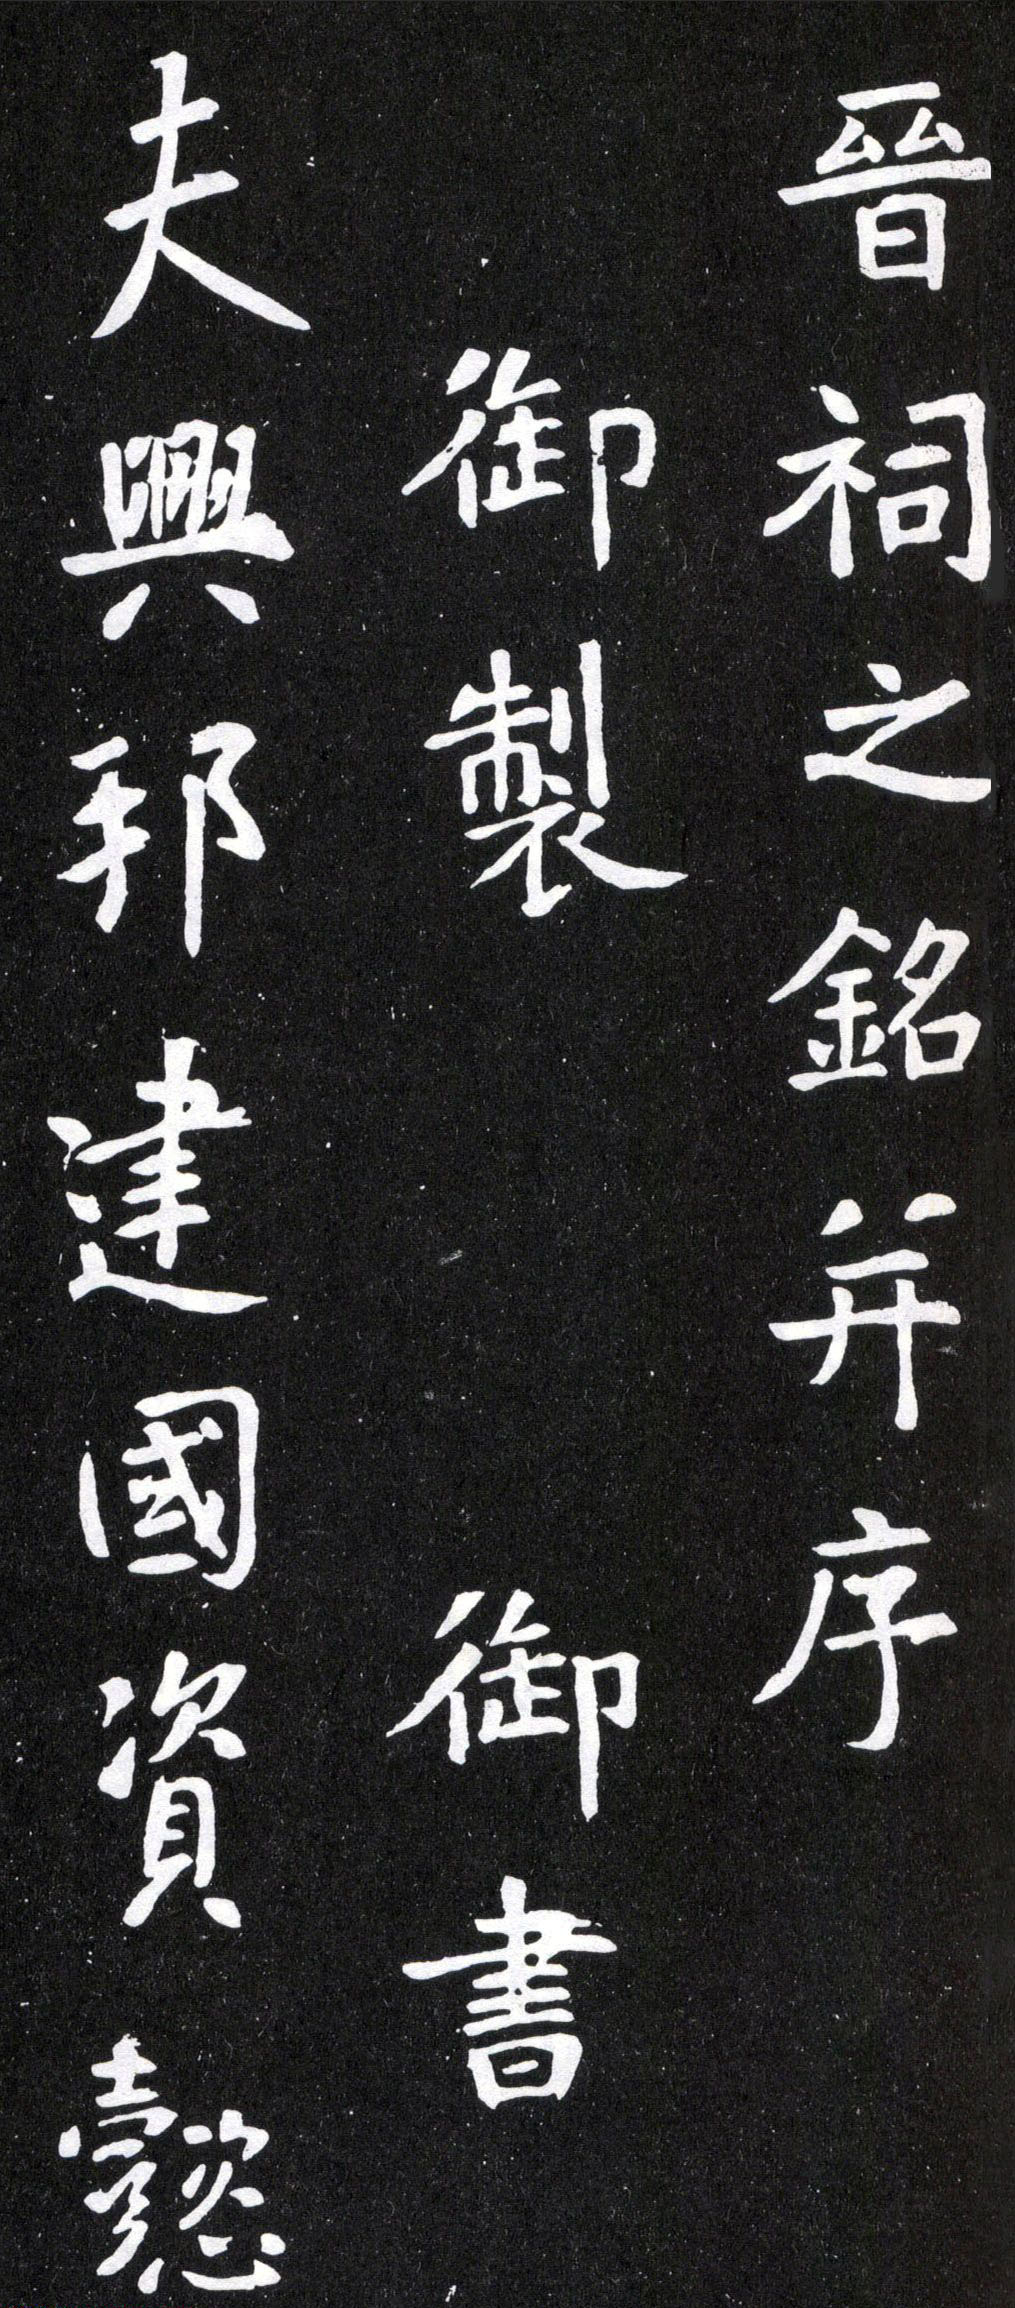 晉祠之銘并序
御製 御書
夫興邦建國資懿